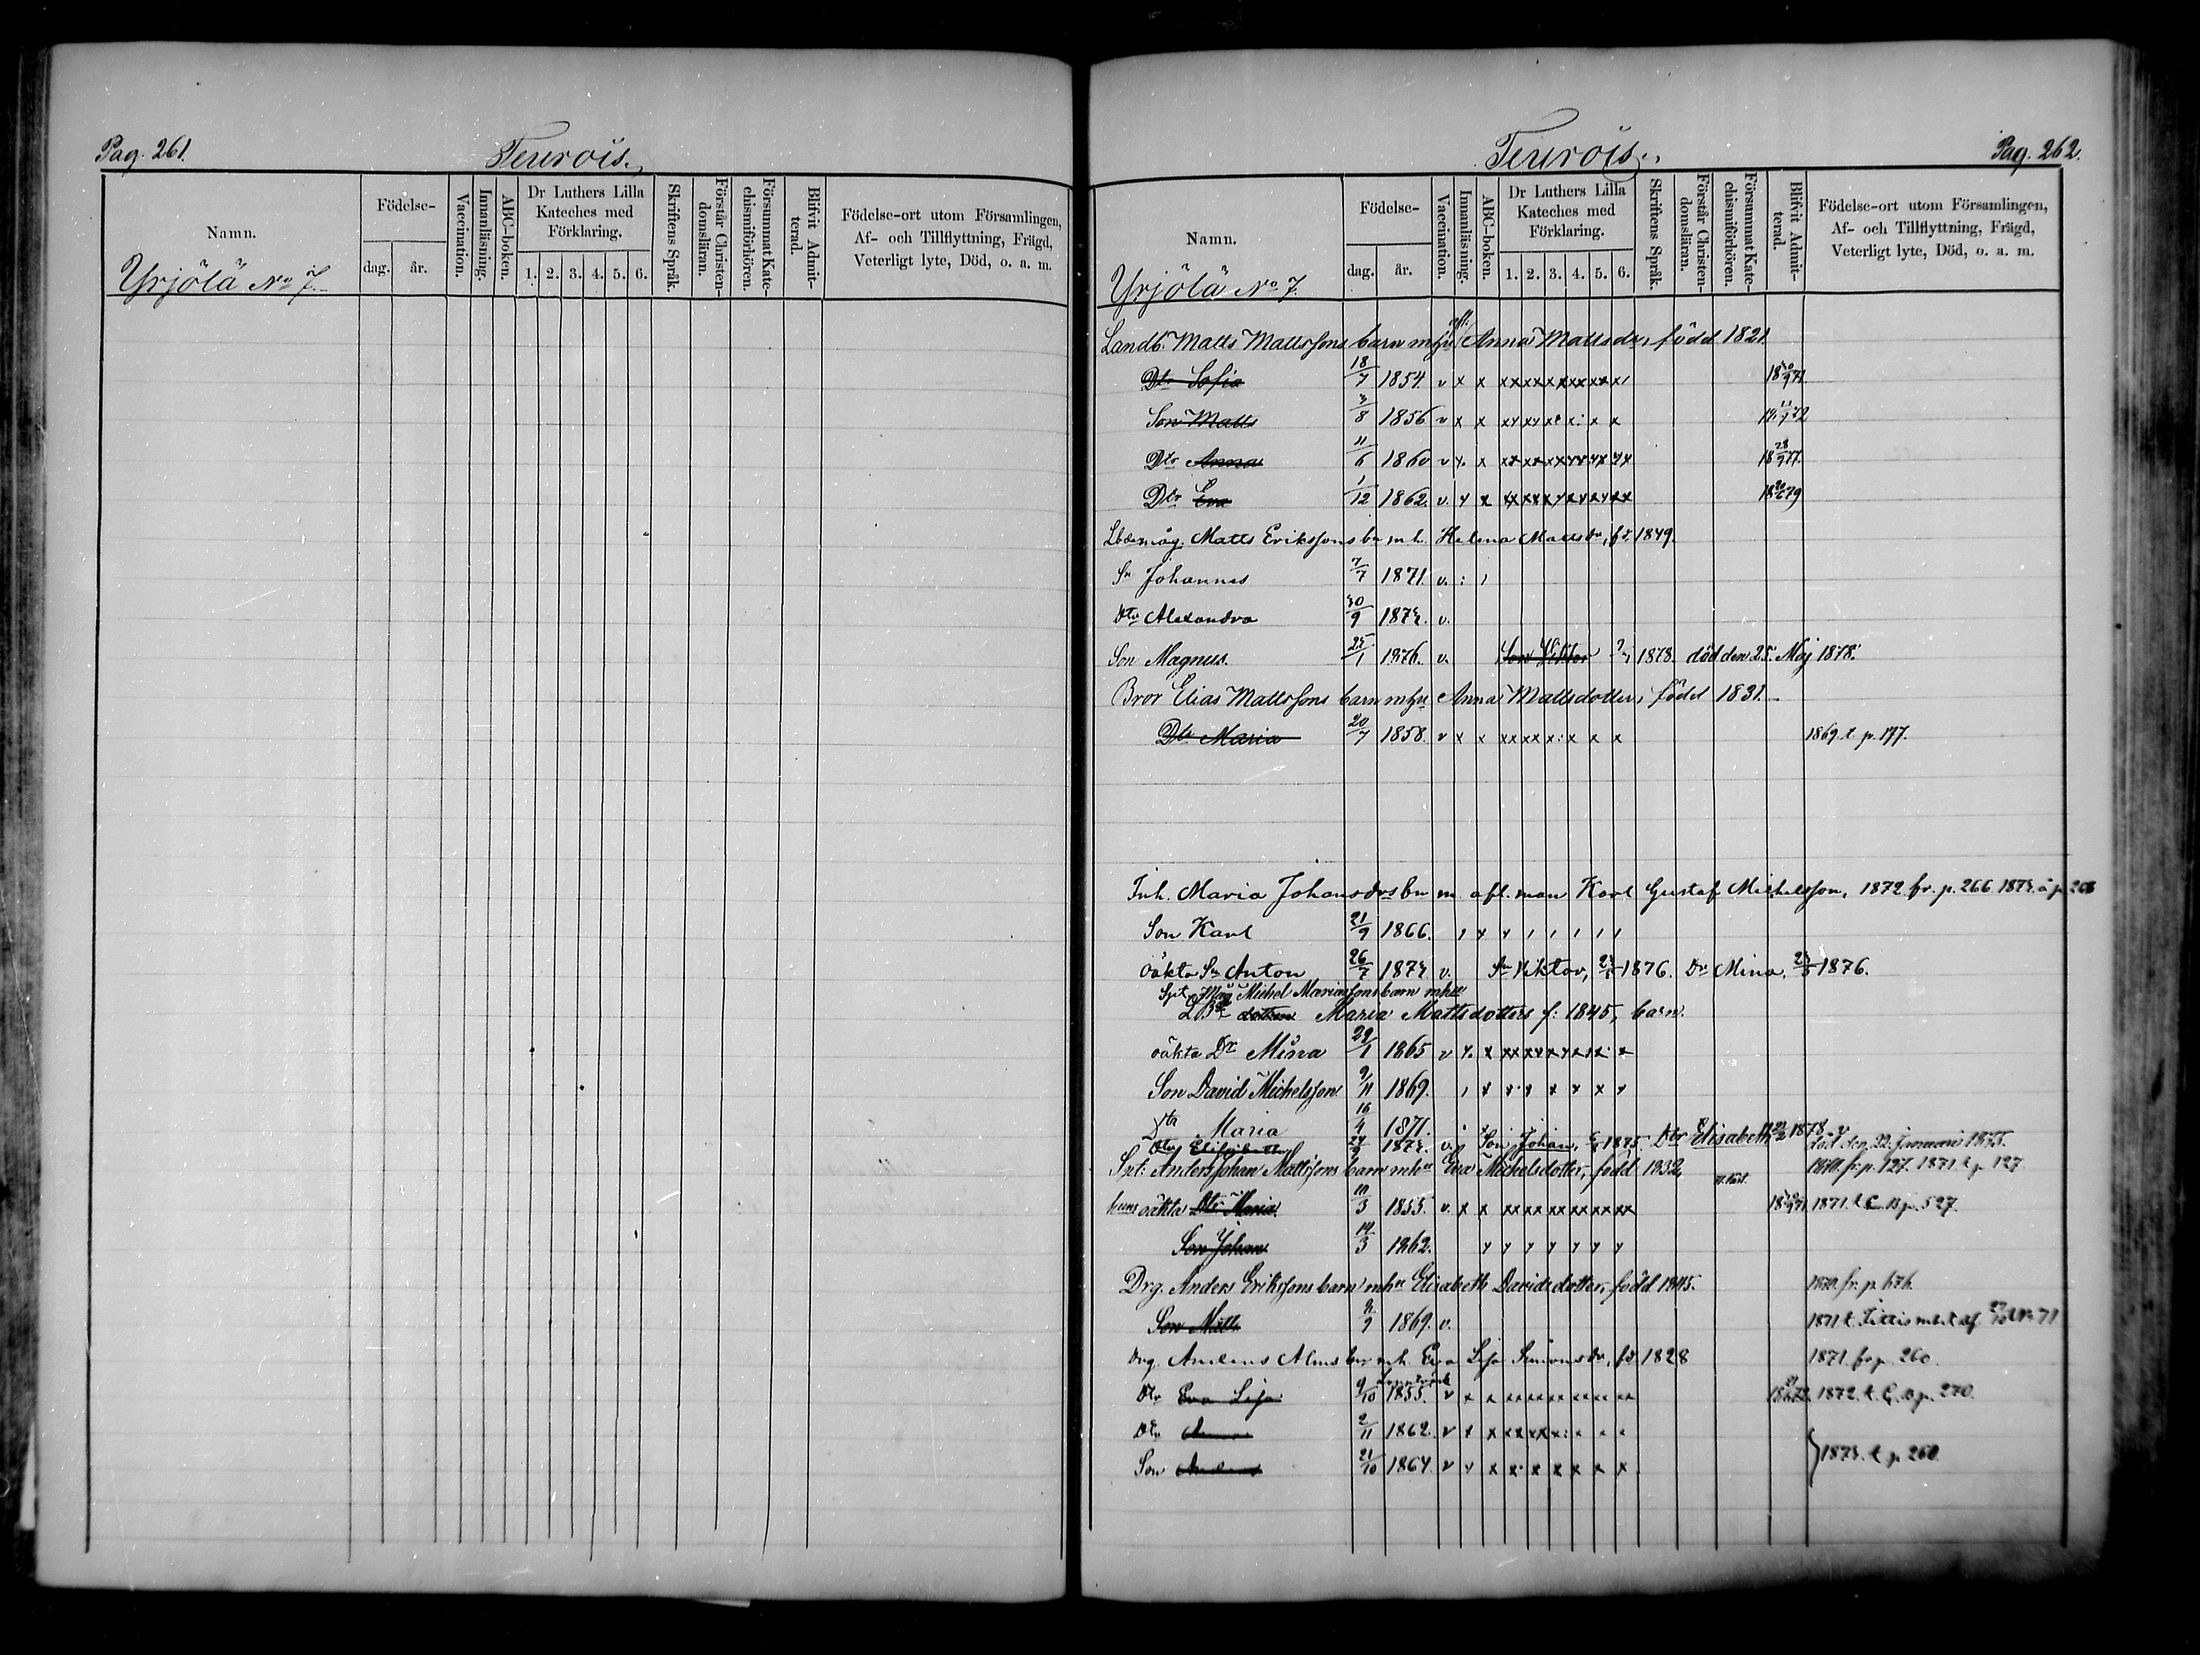 Pag. 261.
Teurois.
Namn.
Födelse-
dag.
år.
Vaccination.
Innanläsning.
ABC-boken.
Dr Luthers Lilla Kateches med Förklaring.
1. 2. 3. 4. 5. 6.
Skriftens Språk.
Förstår Christendomsläran.
Försummat Katechismiförhören.
Blifvit Admitterad.
Födelse-ort utom Församlingen, Af- och Tillflyttning, Frägd, Veterligt lyte, Död, o. a. m.
Yrjölä No 7.
Teurois.
Pag. 262.
Namn.
Födelse-
dag.
år.
Vaccination.
Innanläsning.
ABC-boken.
Dr Luthers Lilla Kateches med Förklaring.
1. 2. 3. 4. 5. 6.
Skriftens Språk.
Förstår Christendomsläran.
Försummat Katechismiförhören.
Blifvit Admitterad.
Födelse-ort utom Församlingen, Af- och Tillflyttning, Frägd, Veterligt lyte, Död, o. a. m.
Yrjölä No 7.
Landb. Matts Mattssons barn m hu Anna Mattsdr, född 1821.
Dtr Sofia 18/7 1854. v x x
Son Matts 3/8 1856 v x x
Dtr Anna 11/6 1860 v x x 18 28/9 77.
Dtr Eva 1/12 1862. v. x x
Matts Erikssons bn m h. Helena Mattsdr, fd 1849.
Sn Johannes 7/7 1871. v.
Dtr Alexandra 30/9 1873. v.
Son Magnus. 25/1 1876. v. Son Viktor 1878. död den 25. Maj 1878.
Bror Elias Mattssons barn m hu Anna Mattsdotter, född 1831.
Dtr Maria 20/7 1858. v x x 1869. t. p. 177.
Inh. Maria Johansdrs bn m. afl. man Karl Gustaf Michelsson, 1872 fr. p. 266. 1873. å p. 268
Son Karl 21/9 1866.
oäkta Sn Anton 26/7 1873. v. Sn Viktor, 1876. Dr Mina, 1876.
Michel Mariassons barn mhu
Maria Mattsdotters f: 1845, barn.
oäkta Dr Mina 29/1 1865 v
Son David Michelsson 9/11 1869.
Maria 16/4 1871.
Dtr Elisabeth 24/9 1873. v. Son Johan, 1875. Dtr Elisabeth 1878. v
död den 22. Januari 1875.
Spt: Anders Johan Mattssons barn mhu Eva Michelsdotter, född 1832, 1870. fr. p. 127. 1871 t. p. 127.
hens oäkta Dtr Maria 10/3 1855. v. x x 1871. t. C. B. p. 527.
Son Johan 14/3 1862.
Drg. Anders Erikssons barn mhu Elisabeth Davidsdotter, född 1845. 1870. fr. p. 676.
Son Matts 1869. v. 1871 t.
Drg. Anders Alms bn m h. Eva Lisa Simonsdr, fd 1828 1871. fr p. 260.
Dtr Eva Lisa 9/10 1855. v x x 1872. t. C. B. p. 270.
Dtr 2/11 1862 v
Son Anders 21/10 1864. v
1873. t. p. 260.